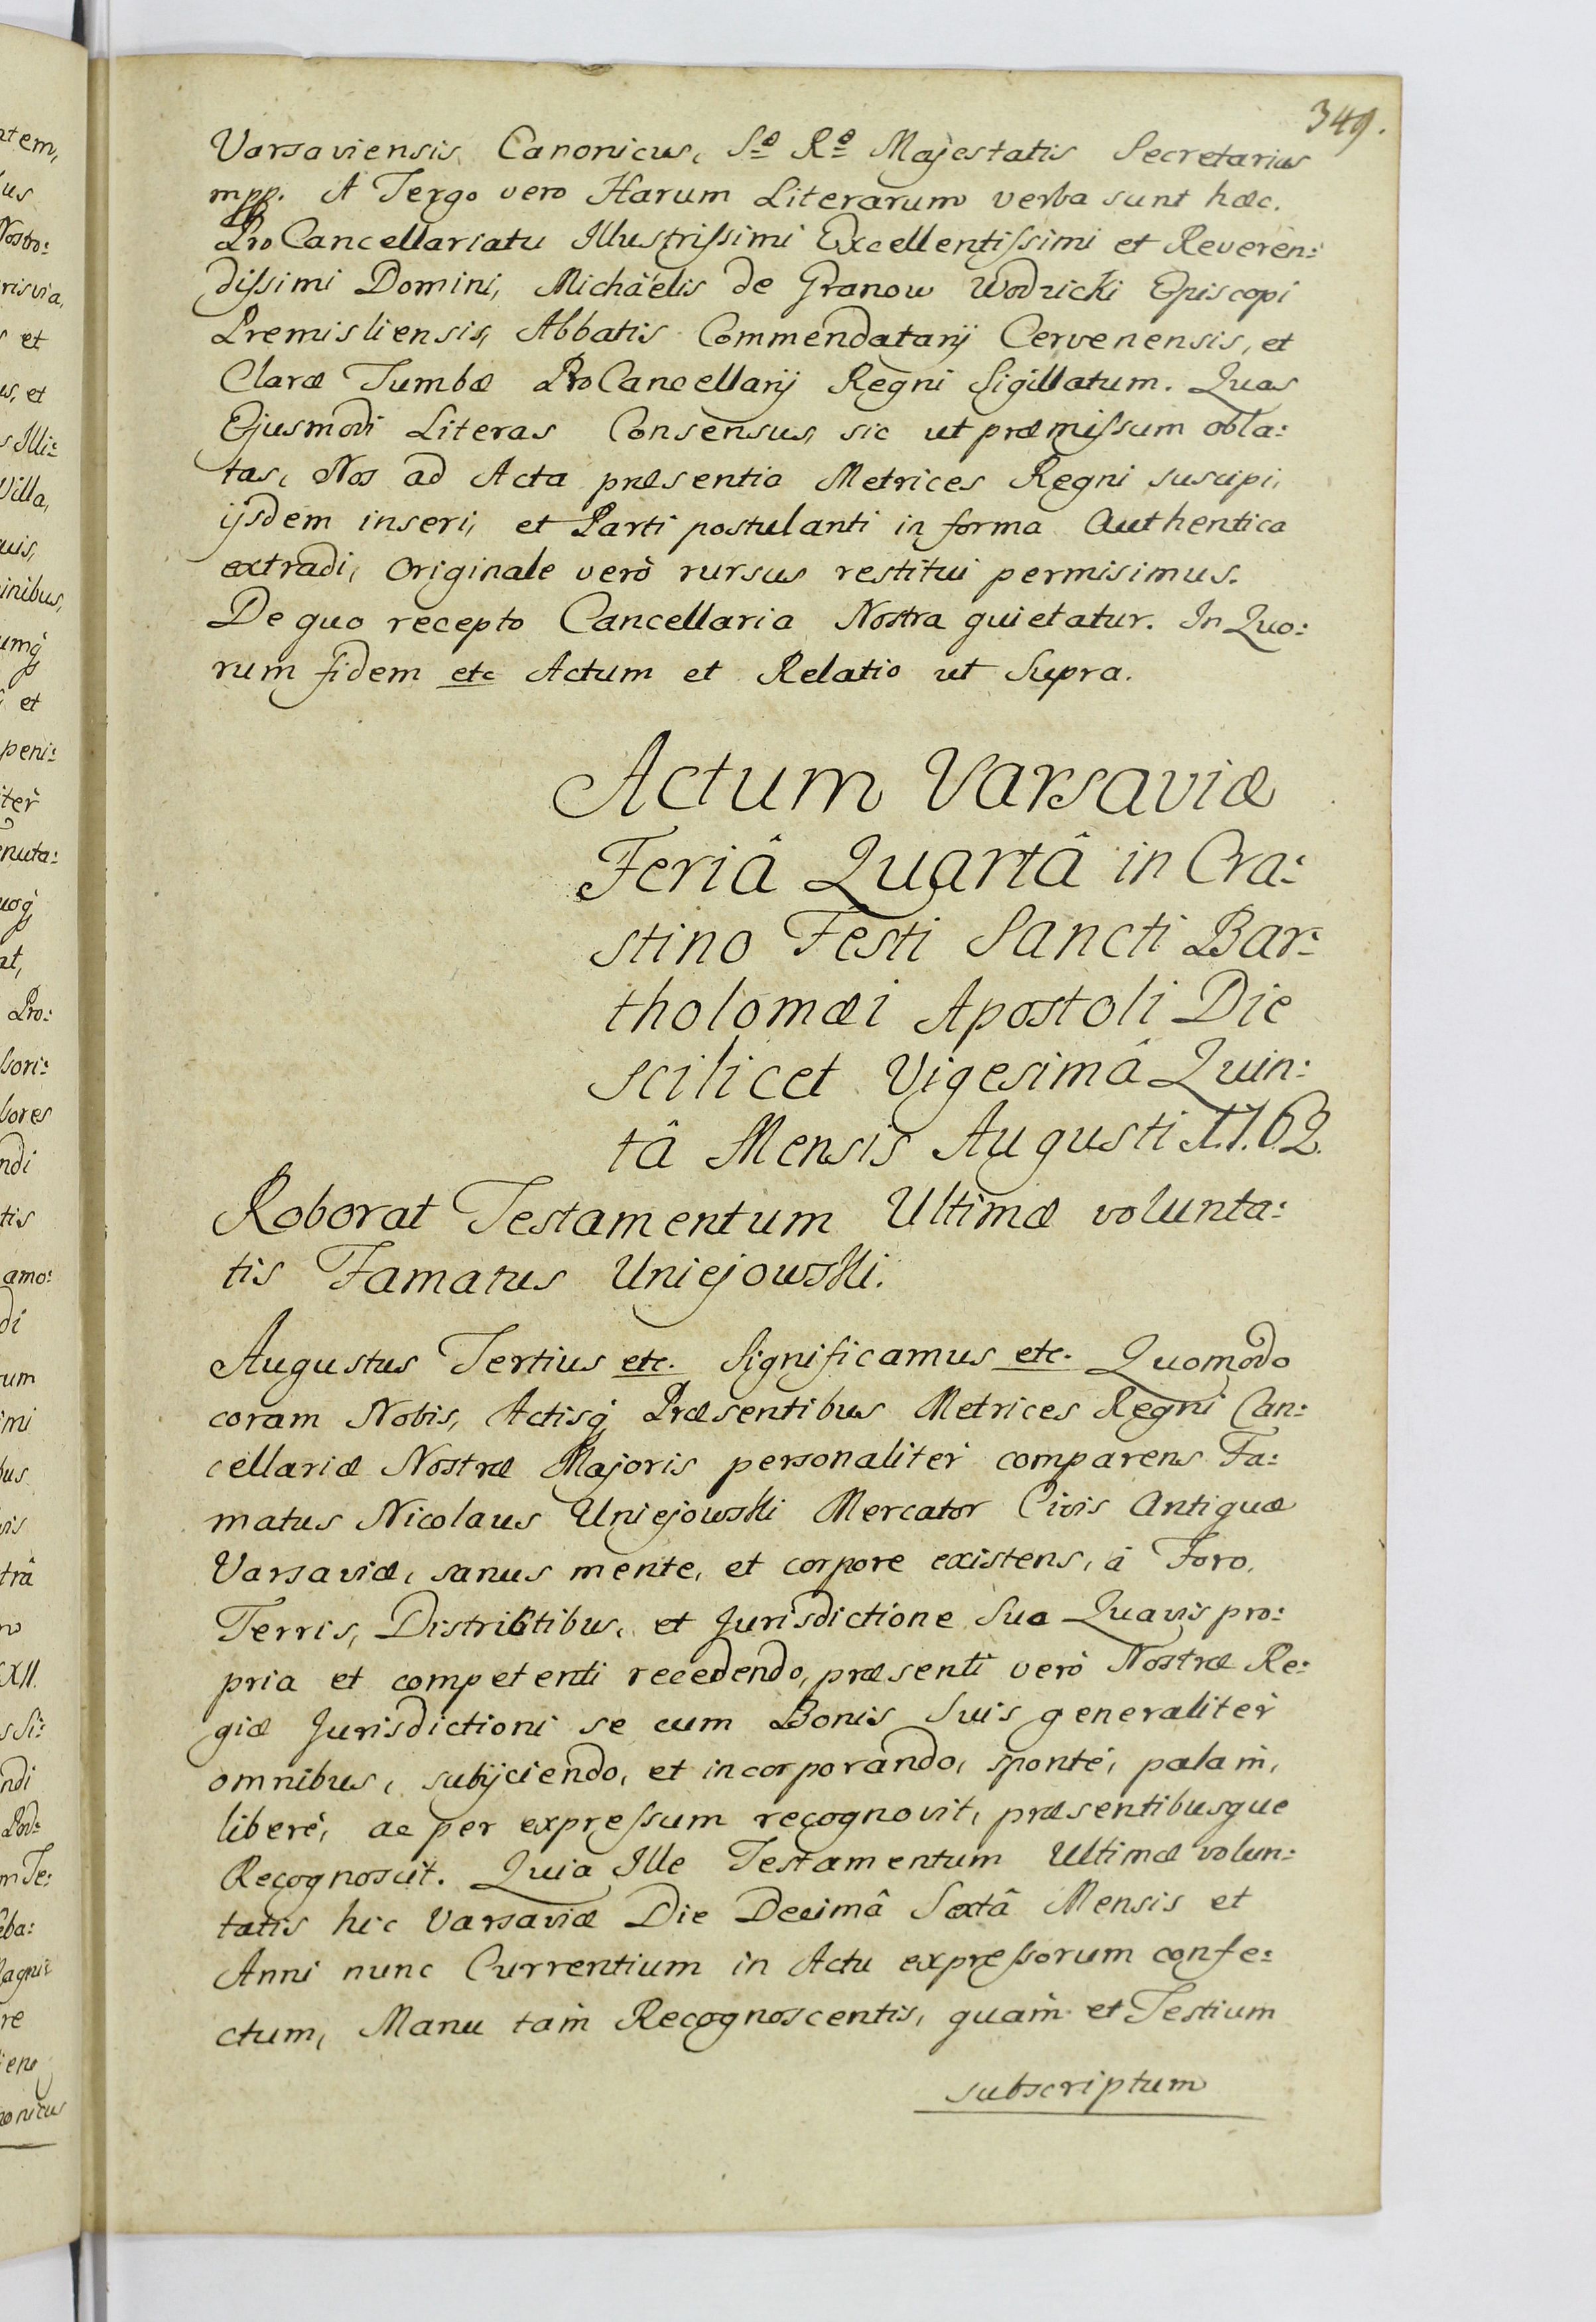 349.
Varsaviensis Canonicus, S=æ R=æ Majestatis Secretarius
mpp. A Tergo vero Harum Literarum verba sunt hæc.
ProCancellariatu Illustrissimi Excellentissimi et Reveren:
dissimi Domini, Michäelis de Granow Wodzicki Episcopi
Premisliensis, Abbatis Commendatarij Cervenensis, et
Claræ Tumbæ ProCancellarij Regni Sigillatum. Quas
Ejusmodi Literas Consensus, sic ut præmissum obla:
tas, Nos ad Acta præsentia Metrices Regni suscipi,
ijsdem inseri, et Parti postulanti in forma Authentica
extradi, Originale verò rursus restitui permisimus.
De quo recepto Cancellaria Nostra quietatur. In Quo:
rum fidem etc Actum et Relatio ut Supra.
Actum Varsaviæ
Feriâ Quartâ in Cra:
stino Festi Sancti Bar:
tholomæi Apostoli Die
scilicet Vigesimâ Quin:
tâ Mensis Augusti 1762.
Roborat Testamentum Ultimæ volunta:
tis Famatus Uniejowski.
Augustus Tertius etc. Significamus etc. Quomodo
coram Nobis, Actisq Præsentibus Metrices Regni Can:
cellariæ Nostræ Majoris personaliter comparens Fa:
matus Nicolaus Uniejowski Mercator Civis Antiquæ
Varsaviæ, sanus mente, et corpore existens, à Foro,
Terris, Districtibus, et Jurisdictione Sua Quavis pro:
pria et competenti recedendo, præsenti verò Nostræ Re:
giæ Jurisdictioni se cum Bonis Suis generalitèr
omnibus, subijciendo, et incorporando, spontè, palam,
liberè, ac per expressum recognovit, præsentibusque
Recognoscit. Quia Ille Testamentum Ultimæ volun:
tatis hic Varsaviæ Die Decimâ Sextâ Mensis et
Anni nunc Currentium in Actu expressorum confe:
ctum, Manu tam Recognoscentis, quam et Testium
subscriptum